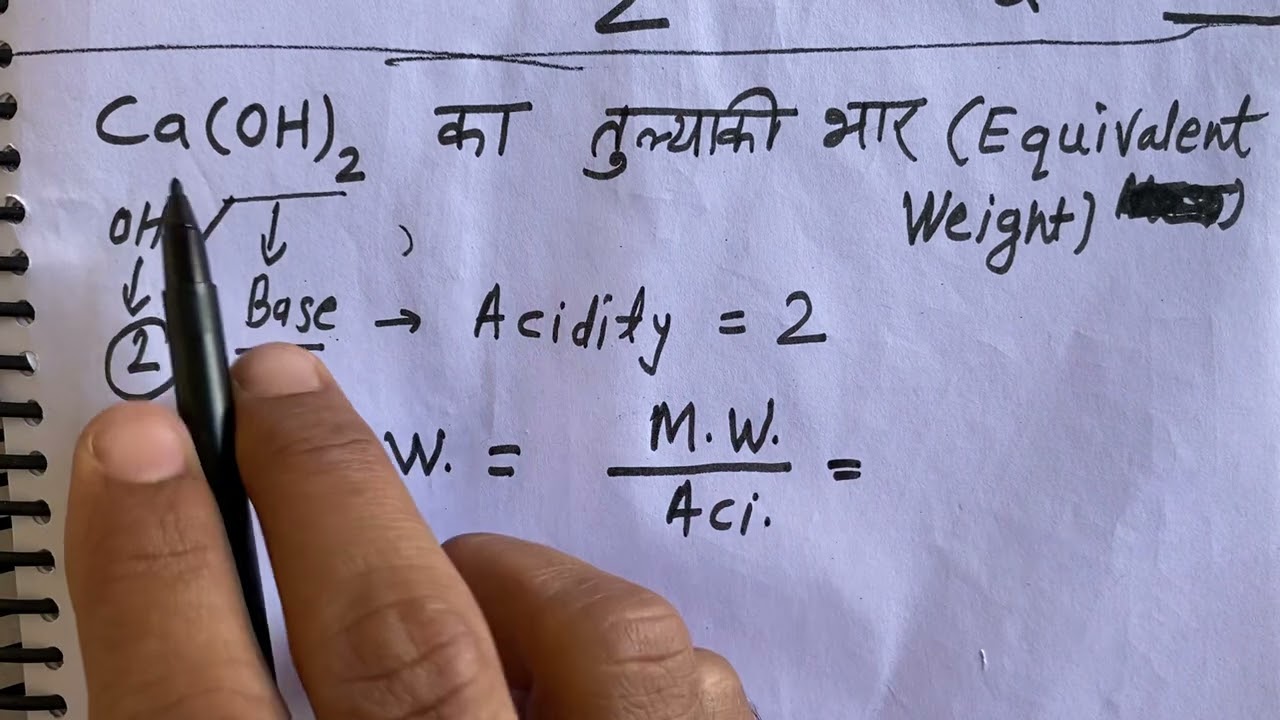 2
Ca(OH)2 का तुल्याकी भार (Equivalent
Weight)
OH
2
Base → Acidity = 2
W. = M.W. / Aci. =